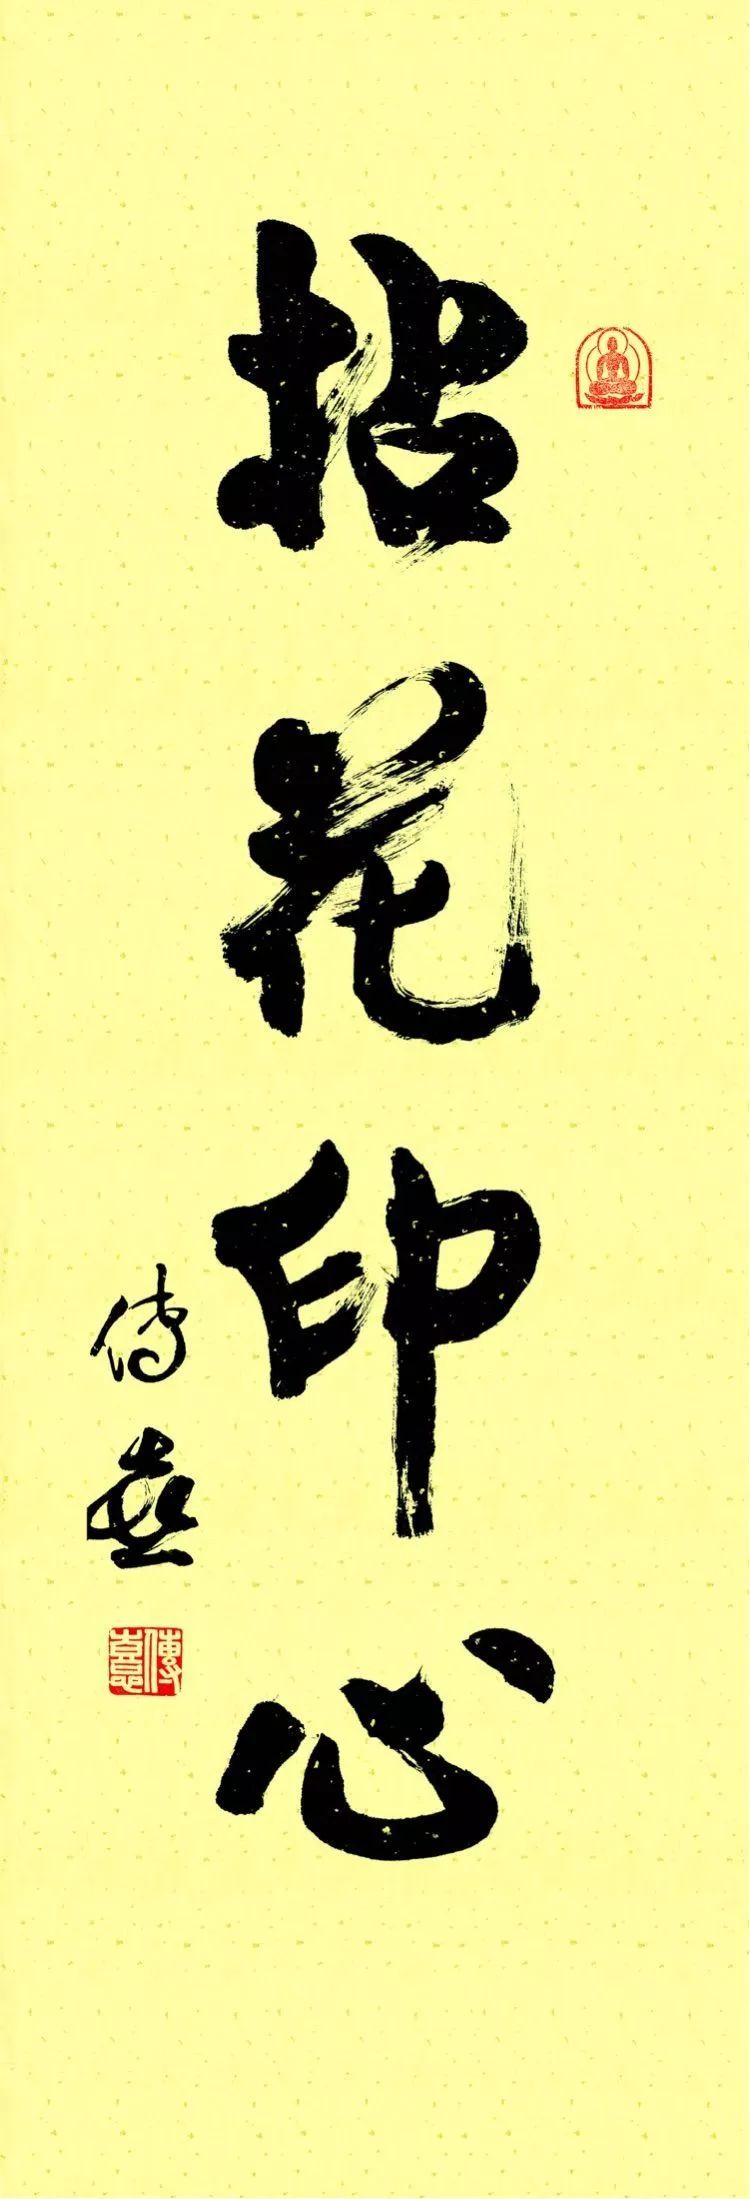 拈花印心
傳喜
傳喜